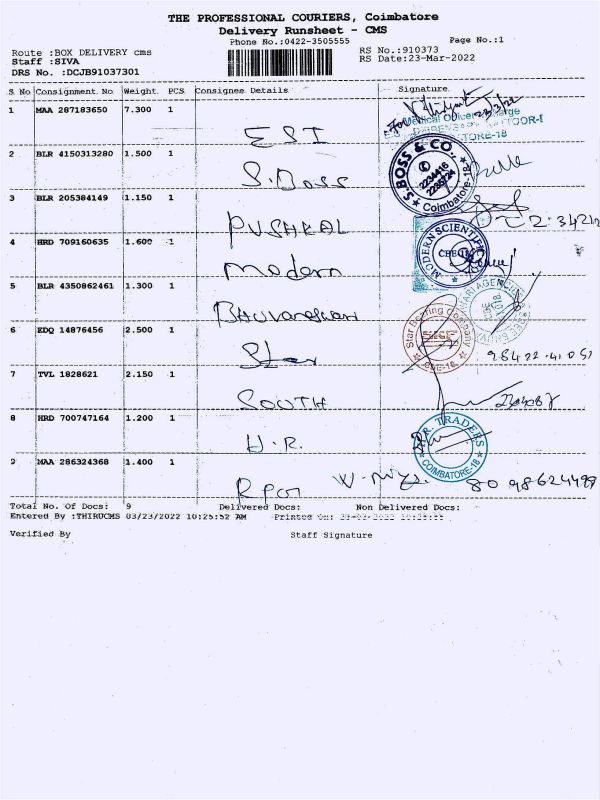 THE PROFESSIONAL COURIERS, Coimbatore
Delivery Runsheet - CMS
Phone No.:0422-3505555
Page No.:1
Route :BOX DELIVERY cms
RS No.:910373
Staff :SIVA
RS Date:23-Mar-2022
DRS No. :DCJB91037301
S No Consignment No Weight PCS Consignee Details Signature
1 MAA 287183650 7.300 1
ESI
23/3/22
2 BLR 4150313280 1.500 1
S.Boss
S.BOSS & CO., Coimbatore-18
2234416
3 BLR 205384149 1.150 1
PUSHKAL
4 HRD 709160635 1.600 1
modern
MODERN SCIENTIFIC
5 BLR 4350862461 1.300 1
6 EDQ 14876456 2.500 1
Star
Star Bearing Company
98422-41051
7 TVL 1828621 2.150 1
SOUTH
8 HRD 700747164 1.200 1
H.R.
TRADERS COIMBATORE-18
9 MAA 286324368 1.400 1
Total No. Of Docs: 9 Delivered Docs: Non Delivered Docs:
Entered By :THIRUCMS 03/23/2022 10:25:52 AM Printed On:
Verified By Staff Signature